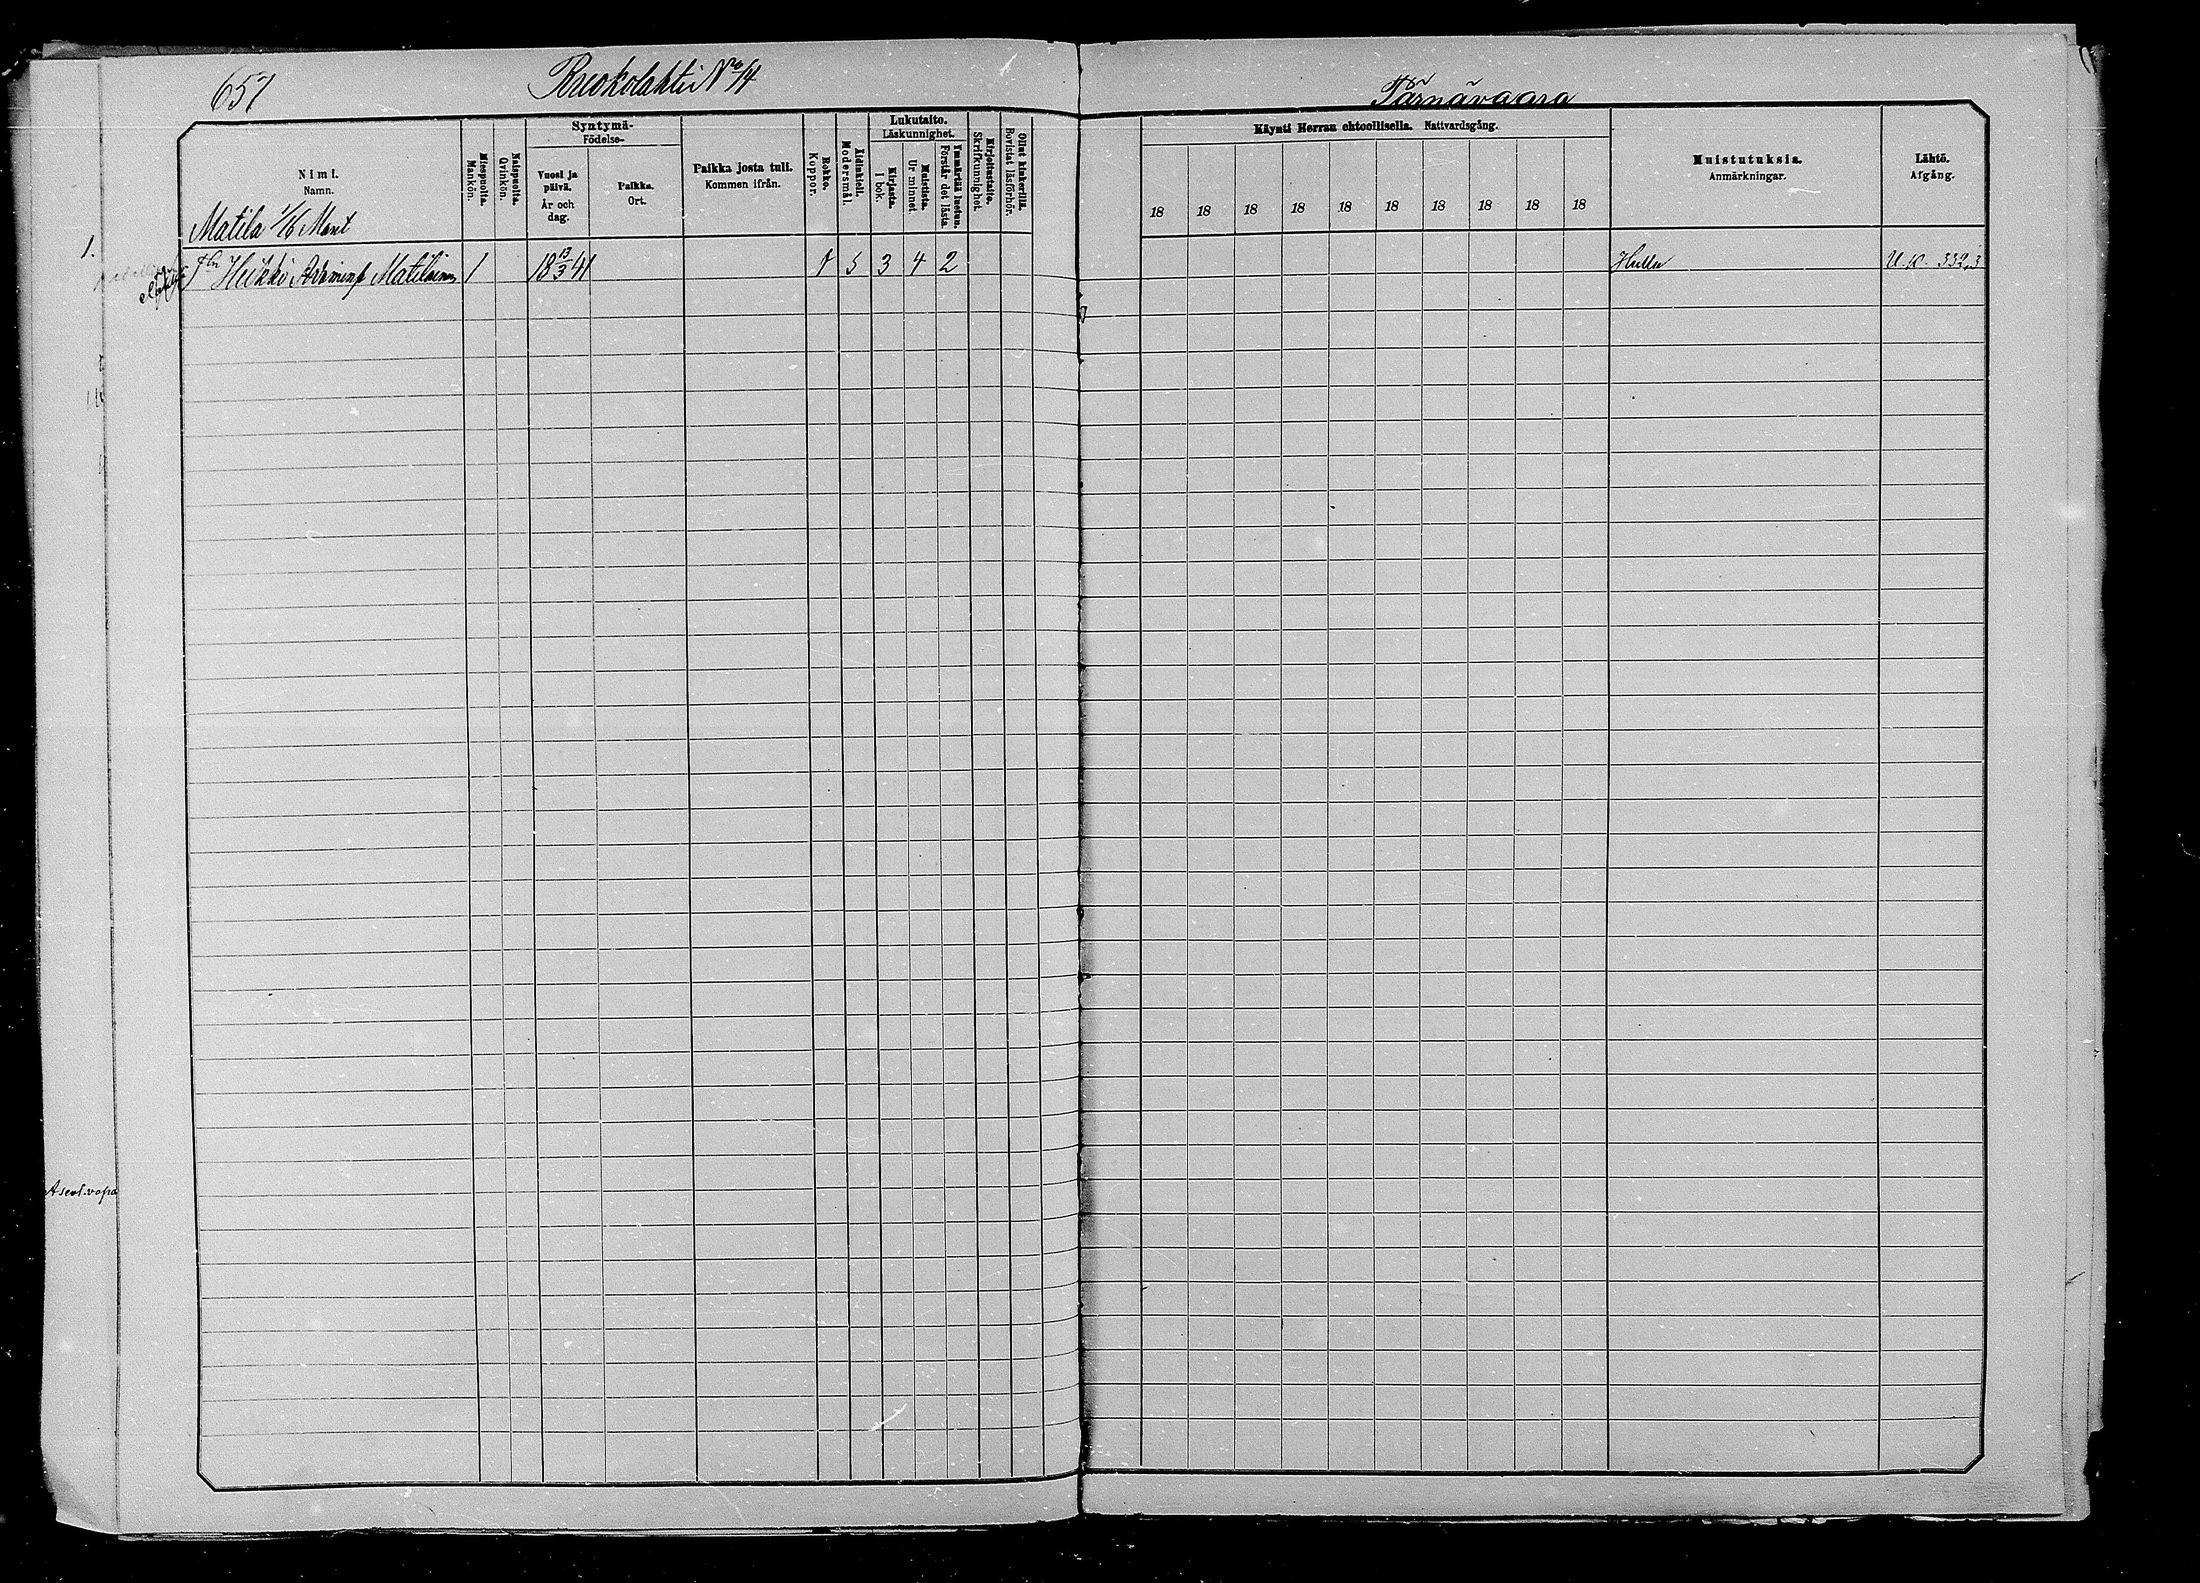 657 Ruokolahti No 14 Pärnävaara
Syntymä-
Födelse-
Lukutaito.
Läskunnighet.
Käynti Herran ehtoollisella. Nattvardsgång.
Nimi.
Namn.
Miespuolta.
Mankön.
Naispuolta.
Qvinkön.
Vuosi ja päivä.
År och dag.
Paikka.
Ort.
Paikka josta tuli.
Kommen ifrån.
Rokko.
Koppor.
Äidinkieli.
Modersmål.
Kirjasta.
I bok.
Muistista.
Ur minnet.
Ymmärtää luetun.
Förstår det lästa.
Kirjoitustaito.
Skrifkunnighet.
Ollut kinkerillä.
Bevistat läsförhör.
18 18 18 18 18 18 18 18 18 18
Muistutuksia.
Anmärkningar.
Lähtö.
Afgång.
Matila 1/16 Mant
1.
Heikki Matilainen 1 18 13/3 41 r 5 3 4 2 Hullu U.K. 332,3